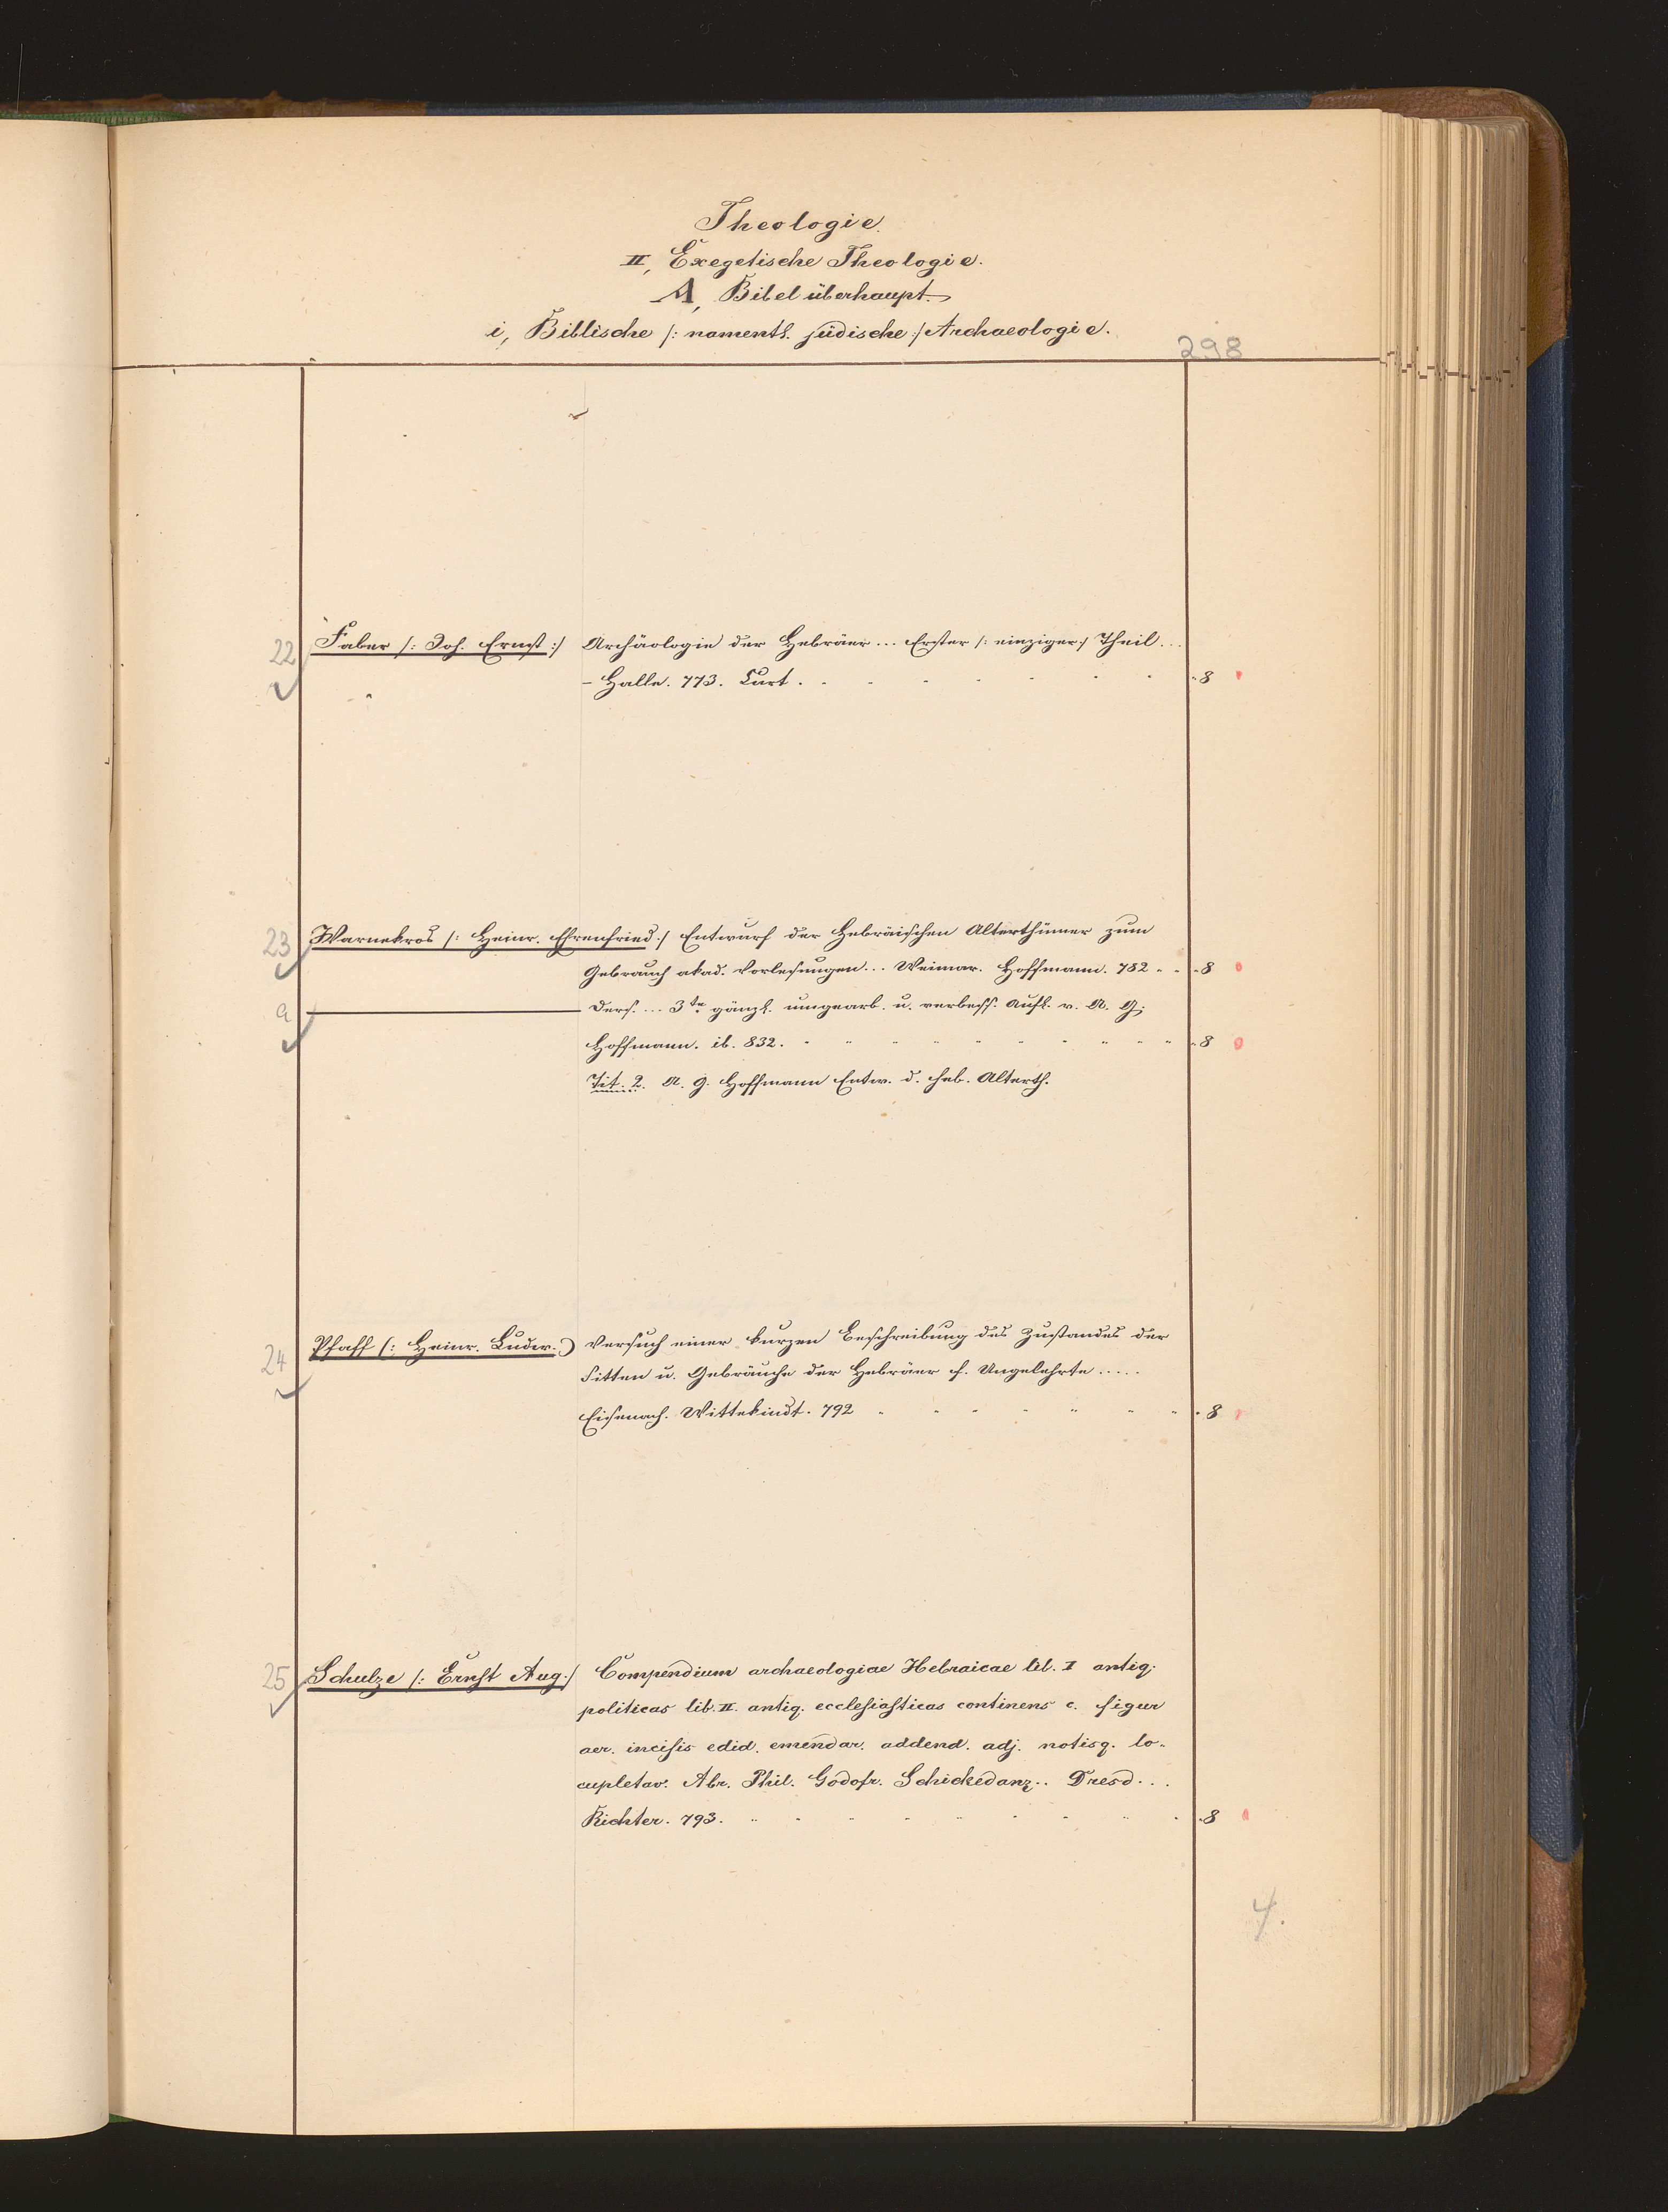 Theologie.
II, Exegetische Theologie.
A, Bibel überhaupt.
i, Biblische /: namentl. jüdische :/ Archaeologie.
298
22 Faber /: Joh. Ernst :/ Archäologie der Hebräer ... Erster /: einziger :/ Theil ...
– Halle. 773. Curt. 8
23 Warnekros /: Heinr. Ehrenfried :/ Entwurf der Hebräischen Alterthümer zum
Gebrauch akad. Vorlesungen ... Weimar. Hoffmann. 782 8
a ——— Ders. ... 3te gänzl. umgearb. u. verbess. Aufl. v. A. G.
Hoffmann. ib. 832. 8
Tit. 2. A. G. Hoffmann Entw. d. heb. Alterth.
24 Pfaff (: Heinr. Ludw. :) Versuch einer kurzen Beschreibung des Zustandes der
Sitten u. Gebräuche der Hebräer f. Ungelehrte .....
Eisenach. Wittekindt. 792 8
25 Schulze /: Ernst Aug. :/ Compendium archaeologiae Hebraicae lib. I antiq.
politicas lib. II. antiq. ecclesiasticas continens c. figur
aer. incisis edid. emendav. addend. adj. notisq. lo-
cupletav. Abr. Phil. Godofr. Schickedanz .. Dresd ...
Richter. 793. 8
4.